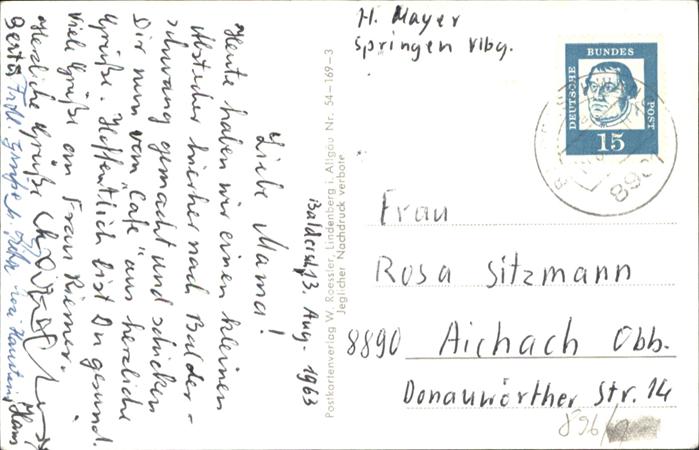 H. Mayer
Springen Vlbg.
DEUTSCHE
BUNDES
POST
15
Liebe Mama!
Heute haben wir einen kleinen
Abstecher hierher nach Balder-
schwang gemacht und schicken
Dir nun vom "Café" aus herzliche
Grüße. Hoffentlich bist Du gesund.
Viele Grüße an Frau Riemer.
Herzliche Grüße
Gerti
Balderschg 13. Aug. 1963
Postkartenverlag W. Roessler, Lindenberg i. Allgäu Nr. 54-169-3
Jeglicher Nachdruck verboten
Frau
Rosa Sitzmann
8890 Aichach Obb.
Donauwörther Str. 14
896/9